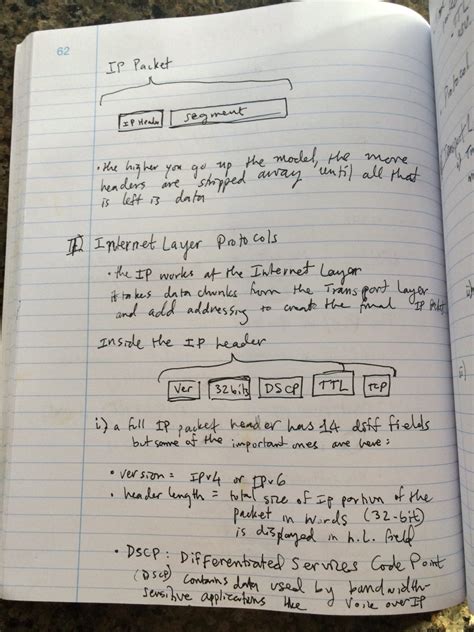 62
IP Packet
IP Header
segment
• the higher you go up the model, the more
headers are stripped away until all that
is left is data
II Internet Layer Protocols
• the IP works at the Internet Layer
it takes data chunks from the Transport Layer
and add addressing to create the final IP Packet
Inside the IP header
Ver 32bits DSCP TTL TCP
i) a full IP packet header has 14 diff fields
but some of the important ones are here:
• version = IPv4 or IPv6
• header length = total size of IP portion of the
packet in words (32-bit)
is displayed in h.L. field
• DSCP: Differentiated Services Code Point
(DSCP) contains data used by bandwidth-
sensitive applications like Voice over IP